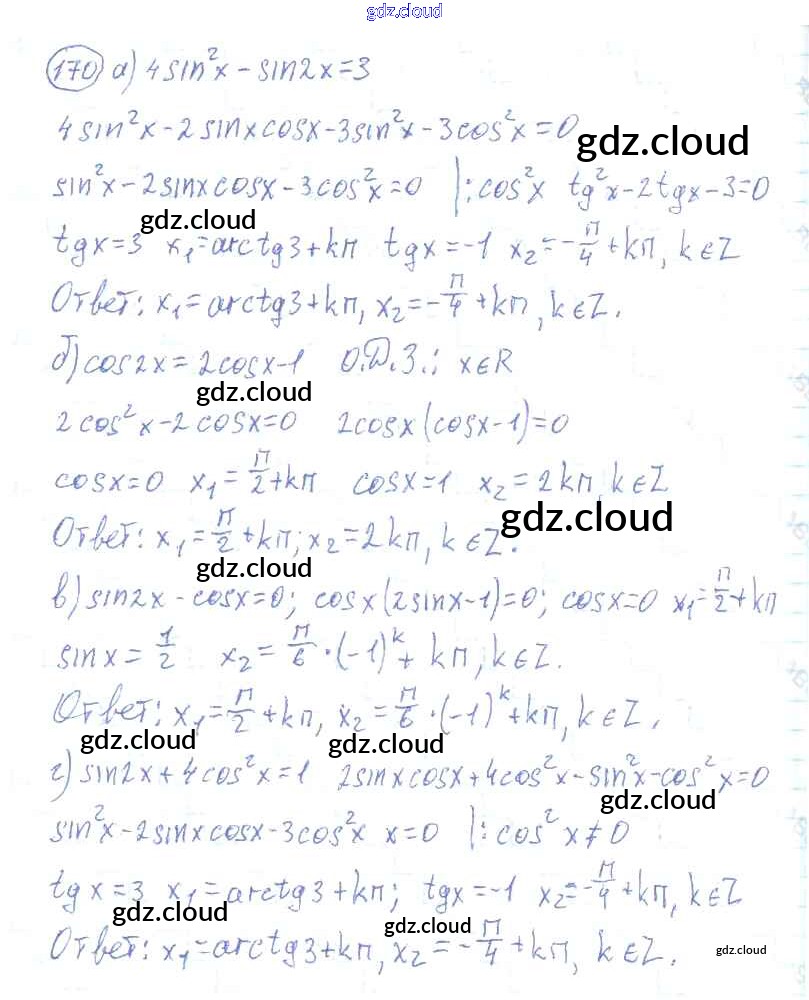 gdz.cloud
170 а) 4sin²x - sin2x=3
4sin²x-2sinxcosx-3sin²x-3cos²x=0
gdz.cloud
sin²x-2sinxcosx-3cos²x=0 |:cos²x tg²x-2tgx-3=0
gdz.cloud
tgx=3 x₁=arctg3+kπ tgx=-1 x₂=-π/4+kπ, k∈Z
Ответ: x₁=arctg3+kπ, x₂=-π/4+kπ, k∈Z.
б) cos2x=2cosx-1 О.Д.З.: x∈R
gdz.cloud
2cos²x-2cosx=0 2cosx(cosx-1)=0
cosx=0 x₁=π/2+kπ cosx=1 x₂=2kπ, k∈Z
gdz.cloud
Ответ: x₁=π/2+kπ; x₂=2kπ, k∈Z.
gdz.cloud
в) sin2x-cosx=0; cosx(2sinx-1)=0; cosx=0 x₁=π/2+kπ
sinx=1/2 x₂=π/6·(-1)ᵏ+kπ, k∈Z.
Ответ: x₁=π/2+kπ, x₂=π/6·(-1)ᵏ+kπ, k∈Z.
gdz.cloud gdz.cloud
г) sin2x+4cos²x=1 2sinxcosx+4cos²x-sin²x-cos²x=0
gdz.cloud
sin²x-2sinxcosx-3cos²x x=0 |:cos²x≠0
tgx=3 x₁=arctg3+kπ; tgx=-1 x₂=-π/4+kπ, k∈Z
gdz.cloud gdz.cloud
Ответ: x₁=arctg3+kπ, x₂=-π/4+kπ, k∈Z.
gdz.cloud